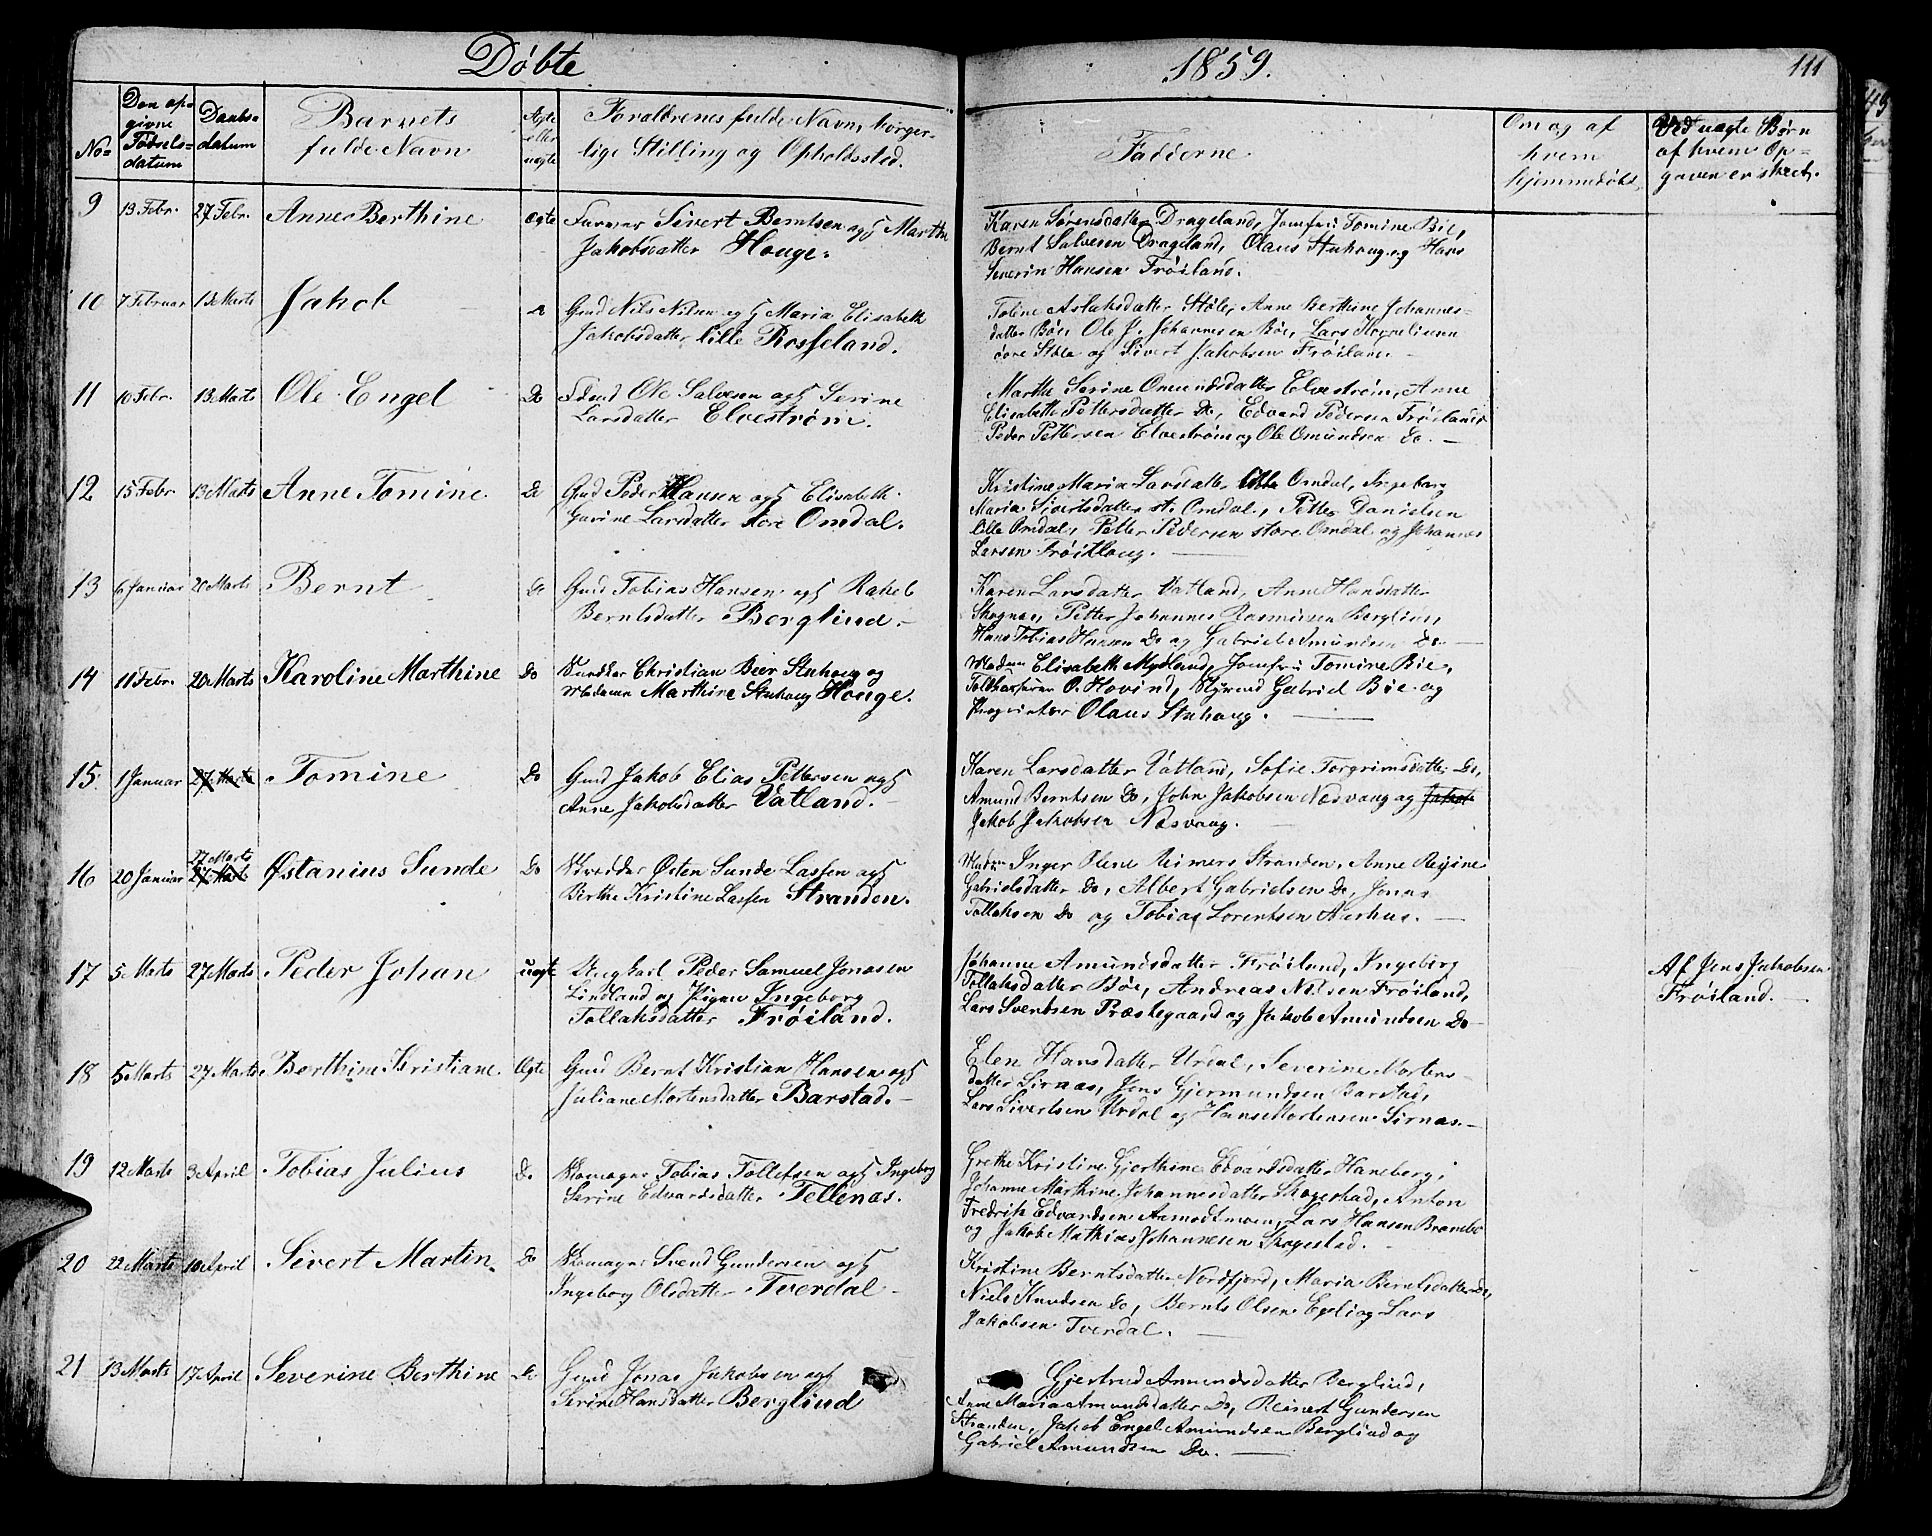 Døbte
1859.
111
No=
Den op=
givne
Fødsels=
datum
Daabs=
datum
Barnets
fulde Navn
Ægte
eller
uægte
Forældrenes fulde Navn, borger-
lige Stilling og Opholdssted.
Fadderne
Om og af
hvem
hjemmedøbt
Ved uægte Børn
af hvem Op=
gaven er skeet.
9 13 Febr. 27 Febr. Anne Berthine ægte Sivert Berntsen og Marthe
Jakobsdatter Houge.
Karen Sørensdatter Drageland, Jomfru Tomine Bie,
Bernt Salvesen Drageland, Olaus Stuhoug og Hans
Severin Hansen Frøiland.
10 7 Februar 13 Marts Jakob Gmd Nils Nilsen og Maria Elisabeth
Jakobsdatter lille Rosseland.
Toline Aslaksdatter Støle, Anne Berthine Johannes=
datter Bøe, Ole J. Johannesen Bøe, Lars Korneliusen
Støle og Sivert Jakobsen Frøiland
11 10 Febr. 13 Marts Ole Engel Do Ole Salvesen og Serine
Larsdatter Elvestrøm.
Marthe Serine Omundsdatter Elvestrøm, Anne
Elisabeth Pettersdatter Do, Edvard Pedersen Frøiland
Peder Pettersen Elvestrøm og Ole Omundsen Do. —
12 15 Febr. 13 Marts Anne Tomine Do Gmd Peder Hansen og Elisabeth
Gurine Larsdatter store Omdal.
Kristine Maria Larsdatter lille Omdal, Ingeborg
Maria Sivertsdatter st. Omdal, Petter Danielsen
lille Omdal, Petter Pedersen store Omdal og Johannes
Larsen Frøitlaug. —
13 6 Januar 20 Marts Bernt Do Gmd Tobias Hansen og Rakel
Berntsdatter Berglind.
Karen Larsdatter Vatland, Anne Hansdatter
Petter Johannes Rasmusen Berglind,
Hans Tobias Hansen Do og Gabriel Amundsen Do
14 11 Febr. 20 Marts Karoline Marthine Do Christian Beer Stuhoug og
Madame Marthine Stuhoug Houge.
Madam Elisabeth Mydland, Jomfru Tomine Bie,
O. Hovind, Styrmd Gabriel Bie og
Olaus Stuhoug. —
15. 1 Januar 27 Marts Tomine Do Gmd Jakob Elias Pettersen og
Anne Jakobsdatter Vatland. —
Karen Larsdatter Vatland, Sofie Torgrimsdatter Do,
Amund Berntsen Do, John Jakobsen Næsvaag og Jakob
Jakob Jakobsen Næsvaag. —
16 20 Januar 27 Marts
27 Marts
Østanius Sunde Do Østen Sunde Lassen og
Birthe Kristine Lassen Stranden.
Madm Inger Helene Reimers Stranden, Anne Regine
Gabrielsdatter Do, Albert Gabrielsen Do, Jonas
Tollaksen Do og Tobias Lorentsen Aarhus. —
17 5 Marts 27 Marts Peder Johan uægte Ungkarl Peder Samuel Jonasen
Lindland og Pigen Ingeborg
Tollaksdatter Frøiland.
Johanne Amundsdatter Frøiland, Ingeborg
Tollaksdatter Bøe, Andreas Nilsen Frøiland,
Lars Sventsen Præstegaard og Jakob Amundsen Do
Af Jens Jakobsen
Frøiland. —
18 5 Marts 27 Marts Berthine Kristiane Ægte Gmd Bernt Kristian Hansen og
Juliane Mortensdatter Barstad. —
Elen Hansdatter Urdal, Severine Mortens
datter Sirnæs, Jens Gjermundsen Barstad,
Lars Sivertsen Urdal og Hans Mortensen Sirnæs. —
19 12 Marts 3 April Tobias Julius Do Skomager Tobias Tollefsen og Ingeborg
Serine Edvardsdatter Tellenæs.
Grethe Kristine Gjerthine Edvardsdatter Haneberg,
Johanne Marthine Johannesdatter Skogestad, Anton
Fredrik Edvardsen Aamodtmoen, Lars Hansen
og Jakob Mathias Johannesen Skogestad. —
20 22 Marts 10 April Sivert Martin Do Skomager Svend Gundersen og
Ingeborg Olsdatter Tverdal —
Kristine Berntsdatter Nordfjord, Maria Berntsdatter Do,
Niels Knudsen Do, Bernt Olsen Egeli og Lars
Jakobsen Tverdal. —
21 13 Marts 17 April Severine Berthine Do Gmd Jonas Jakobsen og
Serine Hansdatter Berglind
Gjertrud Amundsdatter Berglind,
Anne Maria Amundsdatter Do, Reinert Gundersen
Stranden, Jakob Engel Amundsen Berglind og
Gabriel Amundsen Do. —